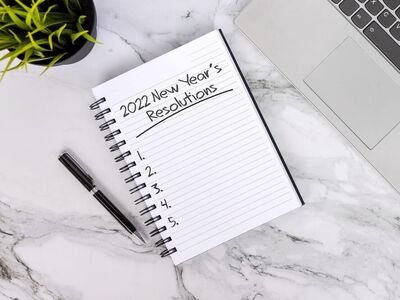 2022 New Year's
Resolutions
1.
2.
3.
4.
5.